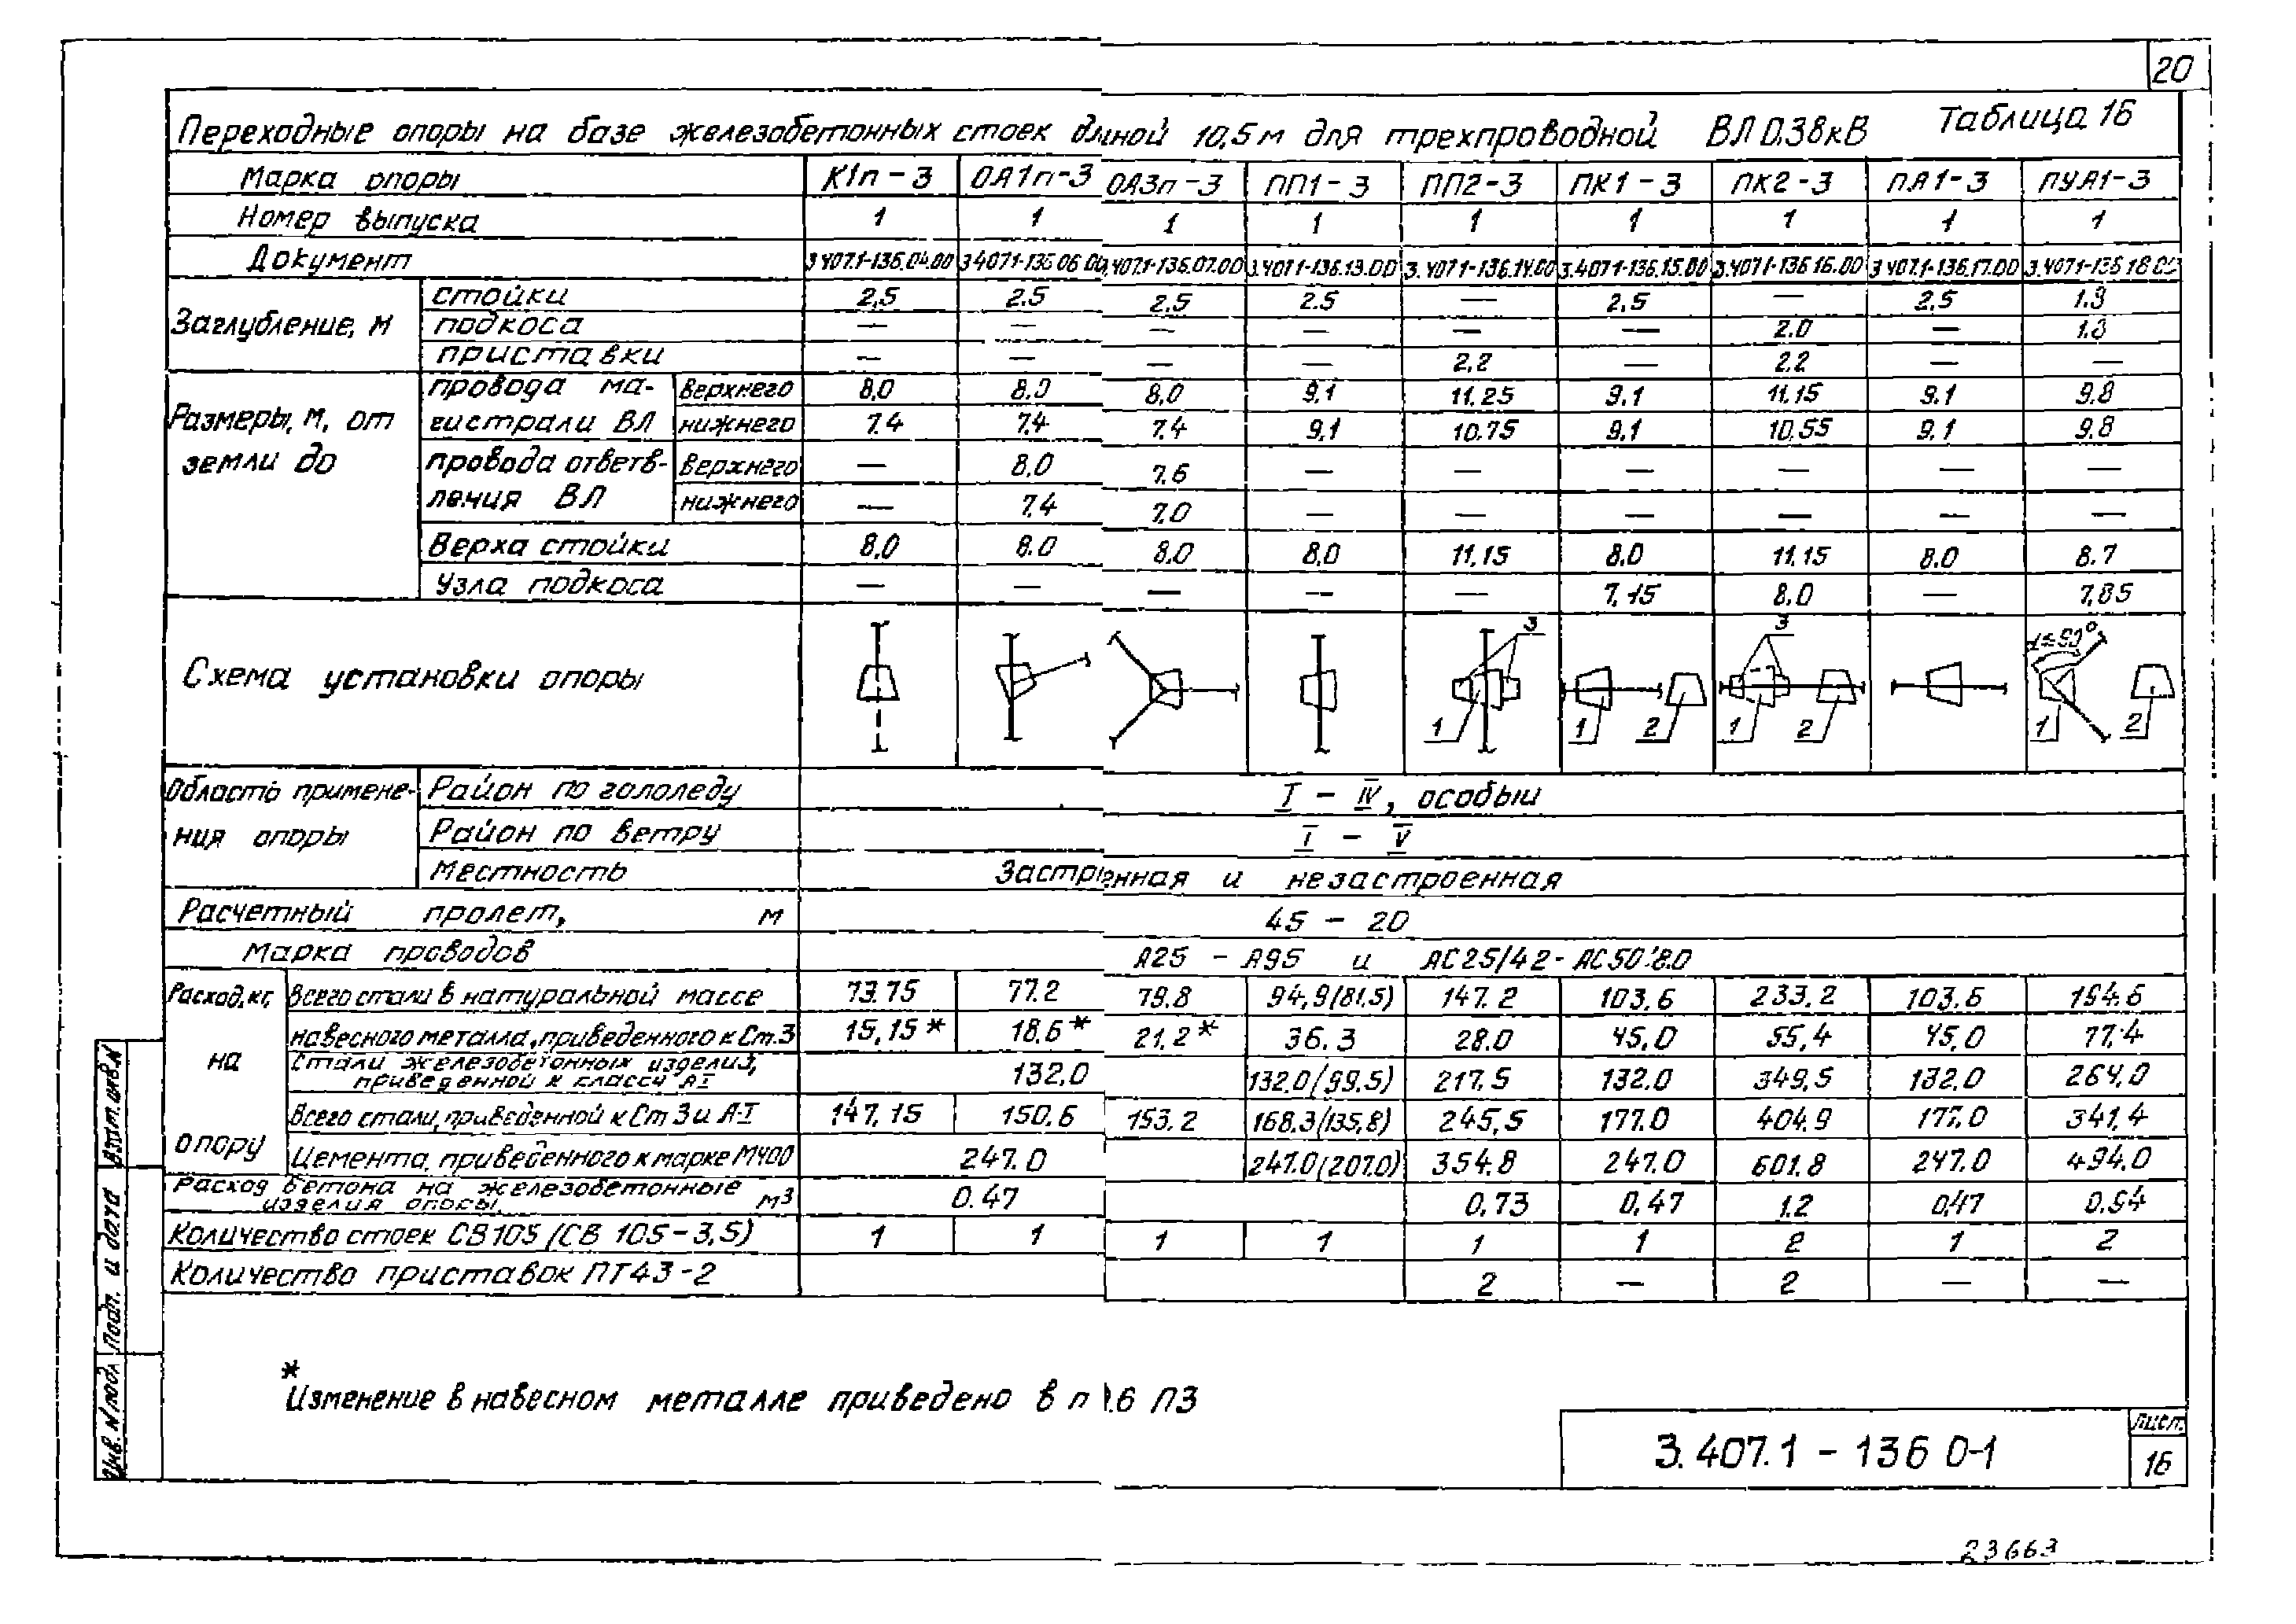 20
Таблица 16
Переходные опоры на базе железобетонных стоек длиной 10,5 м для трехпроводной ВЛ 0.38кВ
Марка опоры К1п-3 ОА1п-3 ОА3п-3 ПП1-3 ПП2-3 ПК1-3 ПК2-3 ПА1-3 ПУА1-3
Номер выпуска 1 1 1 1 1 1 1 1 1
Документ 3.407.1-136.04.00 3.407.1-136.06.00 3.407.1-136.07.00 3.407.1-136.13.00 3.407.1-136.14.00 3.407.1-136.15.00 3.407.1-136.16.00 3.407.1-136.17.00 3.407.1-136.18.00
Заглубление, м
стойки 2,5 2.5 2.5 2.5 — 2.5 — 2.5 1.3
подкоса — — — — — — 2.0 — 1.3
приставки — — — — 2.2 — 2.2 — —
Размеры, м, от земли до
провода магистрали ВЛ
верхнего 8,0 8.0 8,0 9.1 11.25 9.1 11.15 9.1 9.8
нижнего 7.4 7.4 7.4 9.1 10.75 9.1 10.55 9.1 9.8
провода ответвления ВЛ
верхнего — 8.0 7.6 — — — — — —
нижнего — 7.4 7.0 — — — — — —
Верха стойки 8.0 8.0 8.0 8,0 11.15 8.0 11.15 8.0 8.7
Узла подкоса — — — — — 7.15 8.0 — 7.85
Схема установки опоры
3 3 α≤90°
1 1 2 1 2 1 2
Область применения опоры
Район по гололеду I – IV, особый
Район по ветру I – V
Местность Застроенная и незастроенная
Расчетный пролет, м 45 – 20
Марка проводов А25 – А95 и АС25/4.2 - АС50/8.0
Расход, кг, на опору
Всего стали в натуральной массе 73.75 77.2 79.8 94,9(81.5) 147.2 103.6 233.2 103.6 194.6
навесного металла, приведенного к Ст.3 15,15* 18.6* 21.2* 36.3 28.0 45,0 55,4 45,0 77.4
Стали железобетонных изделий, приведенной к классу АI 132.0 132.0(99.5) 217.5 132.0 349,5 132.0 264.0
Всего стали, приведенной к Ст 3 и А-I 147,15 150.6 153.2 168.3(135,8) 245,5 177.0 404.9 177.0 341.4
Цемента, приведенного к марке М400 247.0 247.0(207.0) 354.8 247.0 601.8 247.0 494.0
Расход бетона на железобетонные изделия опоры, м3 0.47 0.73 0,47 1.2 0,47 0.94
Количество стоек СВ105 (СВ 105-3,5) 1 1 1 1 1 1 2 1 2
Количество приставок ПТ43-2 2 — 2 — —
* Изменение в навесном металле приведено в п 1.6 ПЗ
3.407.1 - 136 0-1
Лист
16
Взам. инв. N
Подп. и дата
Инв. N подл
23663